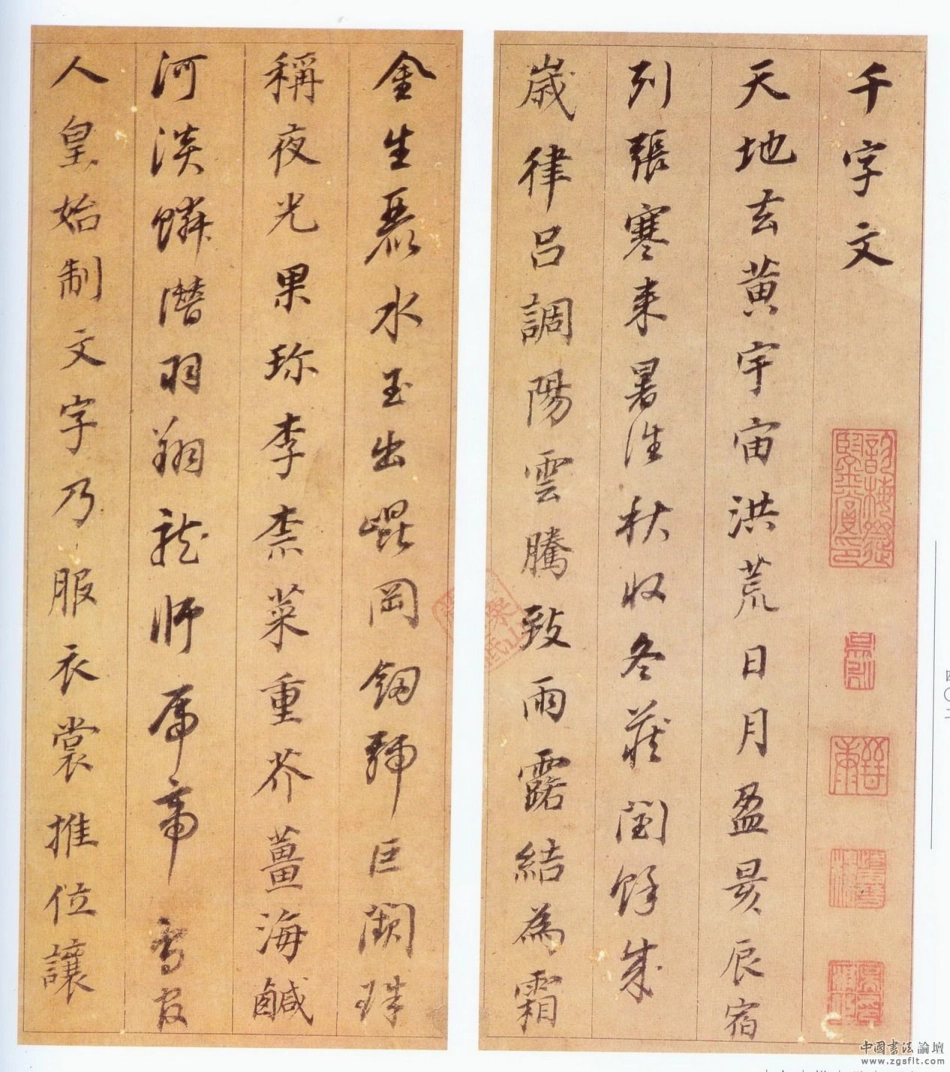 千字文
天地玄黃宇宙洪荒日月盈昃辰宿
列張寒來暑往秋收冬藏閏餘成
歲律呂調陽雲騰致雨露結為霜
金生麗水玉出崐岡劒號巨闕珠
稱夜光果珍李柰菜重芥薑海鹹
河淡鱗潛羽翔龍師席帝鳥官
人皇始制文字乃服衣裳推位讓
中國書法論壇
www.zgsflt.com